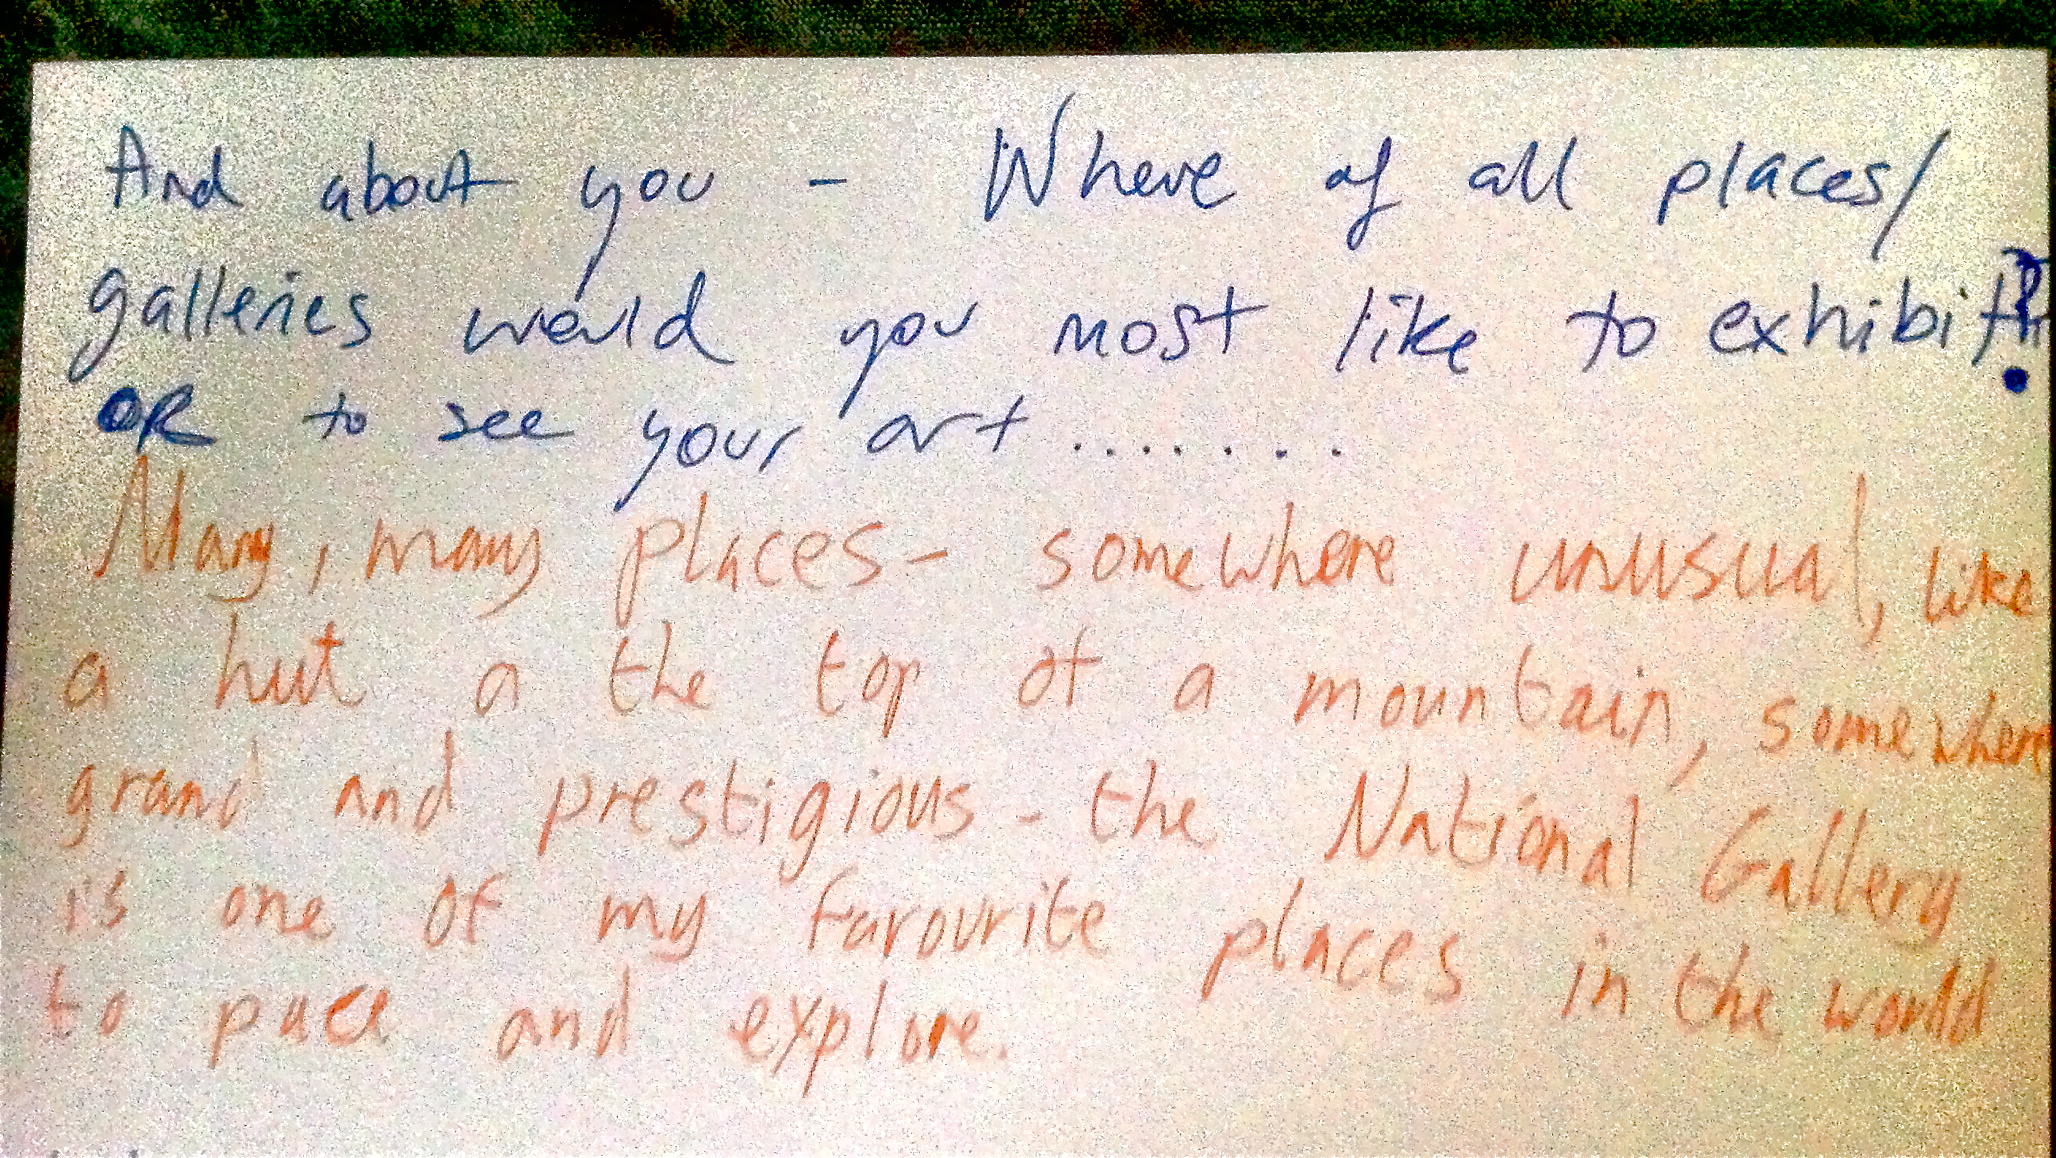 And about you - Where of all places/
galleries would you most like to exhibit?
OR to see your art ........
Many, many places - somewhere unusual, like
a hut a the top of a mountain, somewhere
grand and prestigious - the National Gallery
is one of my favourite places in the world
to pace and explore.